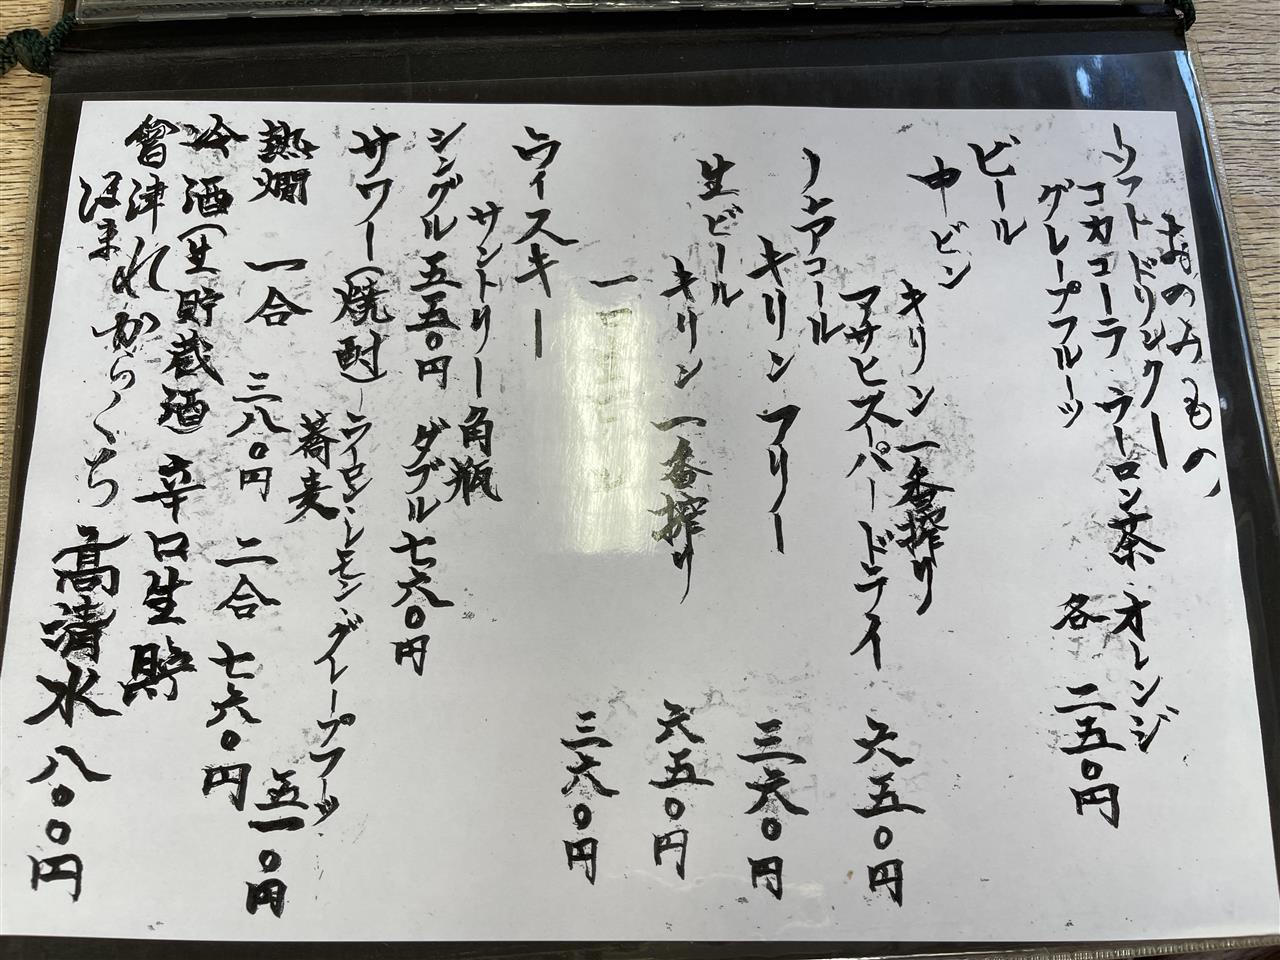 おのみもの
ソフトドリンクー
コカコーラ ウーロン茶・オレンジ
グレープフルーツ 各 二五〇円
ビール
中ビン
キリン一番搾り
アサヒスパードライ 六五〇円
ノンアルコール
キリンフリー 三六〇円
生ビール
キリン一番搾り 六五〇円
三六〇円
ウィスキー
サントリー角瓶
シングル 五五〇円 ダブル 七六〇円
サワー(焼酎)ウーロン・レモン・グレープフルーツ
蕎麦 五一〇円
熱燗 一合 三八〇円 二合 七六〇円
冷酒(生貯蔵酒)辛口生貯
會津 れからくち 高清水 八〇〇円